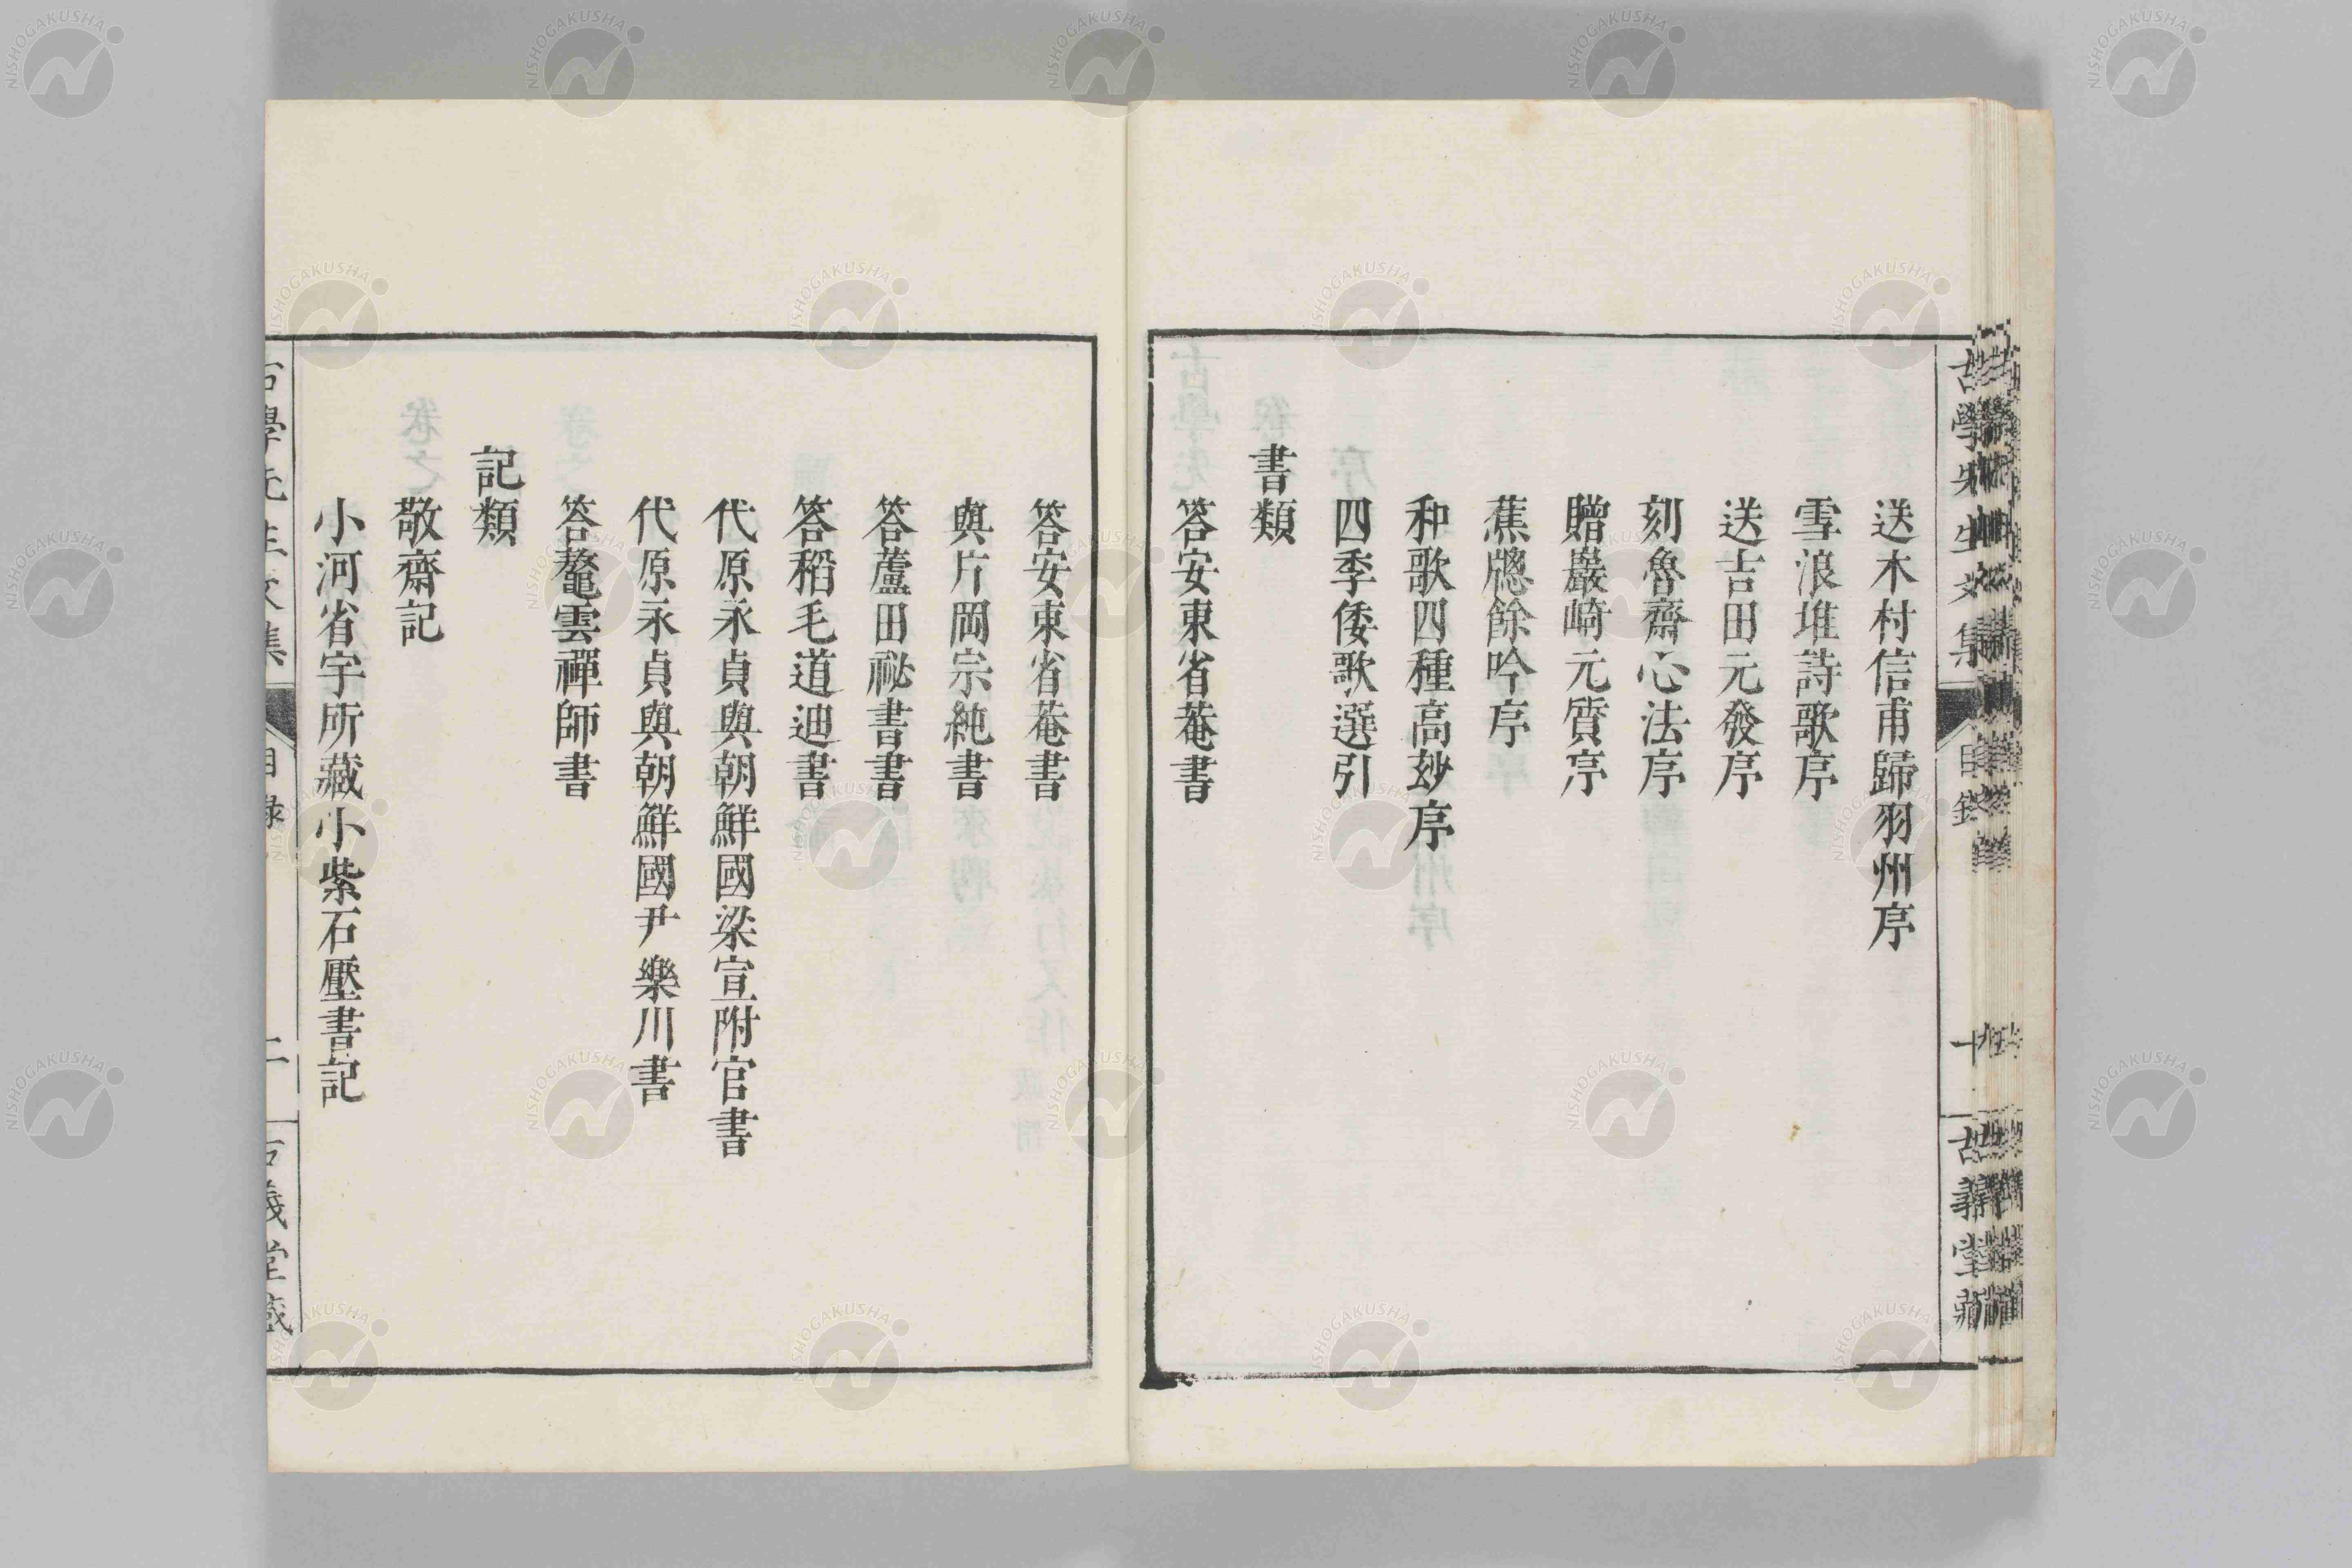 送木村信甫歸羽州序
雪浪堆詩歌序
送吉田元發序
刻魯齋心法序
贈巖崎元質序
蕉牕餘吟序
和歌四種高妙序
四季倭歌選引
書類
答安東省菴書
答安東省菴書
與片岡宗純書
答蘆田祕書書
答稻毛道迪書
代原永貞與朝鮮國梁宣附官書
代原永貞與朝鮮國尹樂川書
答鼇雲禪師書
記類
敬齋記
小河省宇所藏小紫石壓書記
古學先生文集
目錄
二
古義堂藏
NISHOGAKUSHA